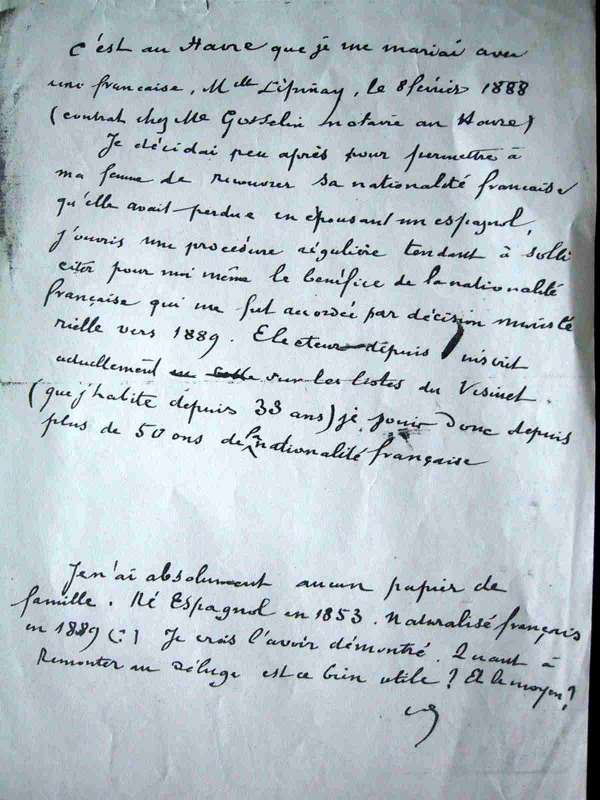 C'est au Havre que je me mariai avec
une française, Mlle Lipinay, le 8 février 1888
(contrat chez Me Gosselin notaire au Havre)
Je décidai peu après pour permettre à
ma femme de recouvrer sa nationalité française
qu'elle avait perdue en épousant un espagnol,
j'ouvris une procédure régulière tendant à solli
citer pour moi même le bénéfice de la nationalité
française qui me fut accordée par décision ministé
rielle vers 1889. Electeur depuis, inscrit
actuellement sur les listes du Vésinet.
(que j'habite depuis 38 ans) je jouis donc depuis
plus de 50 ans de la nationalité française
Je n'ai absolument aucun papier de
famille. Né Espagnol en 1853. Naturalisé français
en 1889 (?) Je crois l'avoir démontré. Quant à
Remonter au déluge est ce bien utile? Et le moyen?